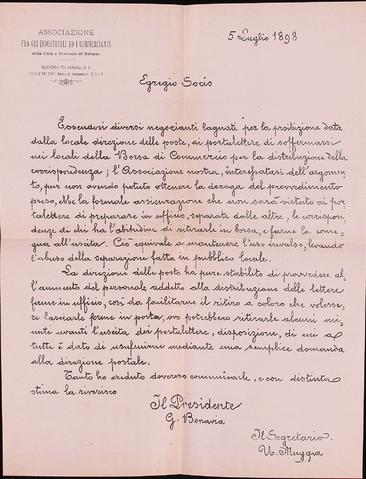 ASSOCIAZIONE
FRA GLI INDUSTRIALI ED I COMMERCIANTI
della Città e Provincia di Bologna
5 Luglio 1898
Egregio Socio
Essendosi diversi negozianti lagnati per la proibizione data
dalla locale direzione delle poste, ai portalettere di soffermarsi
nei locali della Borsa di Commercio per la distribuzione della
corrispondenza; l'Associazione nostra, interessatasi dell'argomen-
to, pur non avendo potuto ottenere la deroga del provvedimento
preso, ebbe la formale assicurazione che non sarà vietato ai por-
talettere di preparare in ufficio, separata dalle altre, le corrispon-
denze di chi ha l'abitudine di ritirarle in borsa, e farne la conse-
gna all'uscita. Ciò equivale a mantenere l'uso invalso, levando
l'abuso della separazione fatta in pubblico locale.
La direzione delle poste ha pure stabilito di provvedere al-
l'aumento del personale addetto alla distribuzione delle lettere
ferme in ufficio, così da facilitarne il ritiro a coloro che volesse-
ro lasciarle ferme in posta, ove potrebbero ritirarle alcuni mi-
nuti avanti l'uscita dei portalettere, disposizione, di cui a
tutti è dato di usufruirne mediante una semplice domanda
alla direzione postale.
Tanto ho creduto doveroso comunicarle, e con distinta
stima la riverisco
Il Presidente
G. Bonavia
Il Segretario
U. Muggia